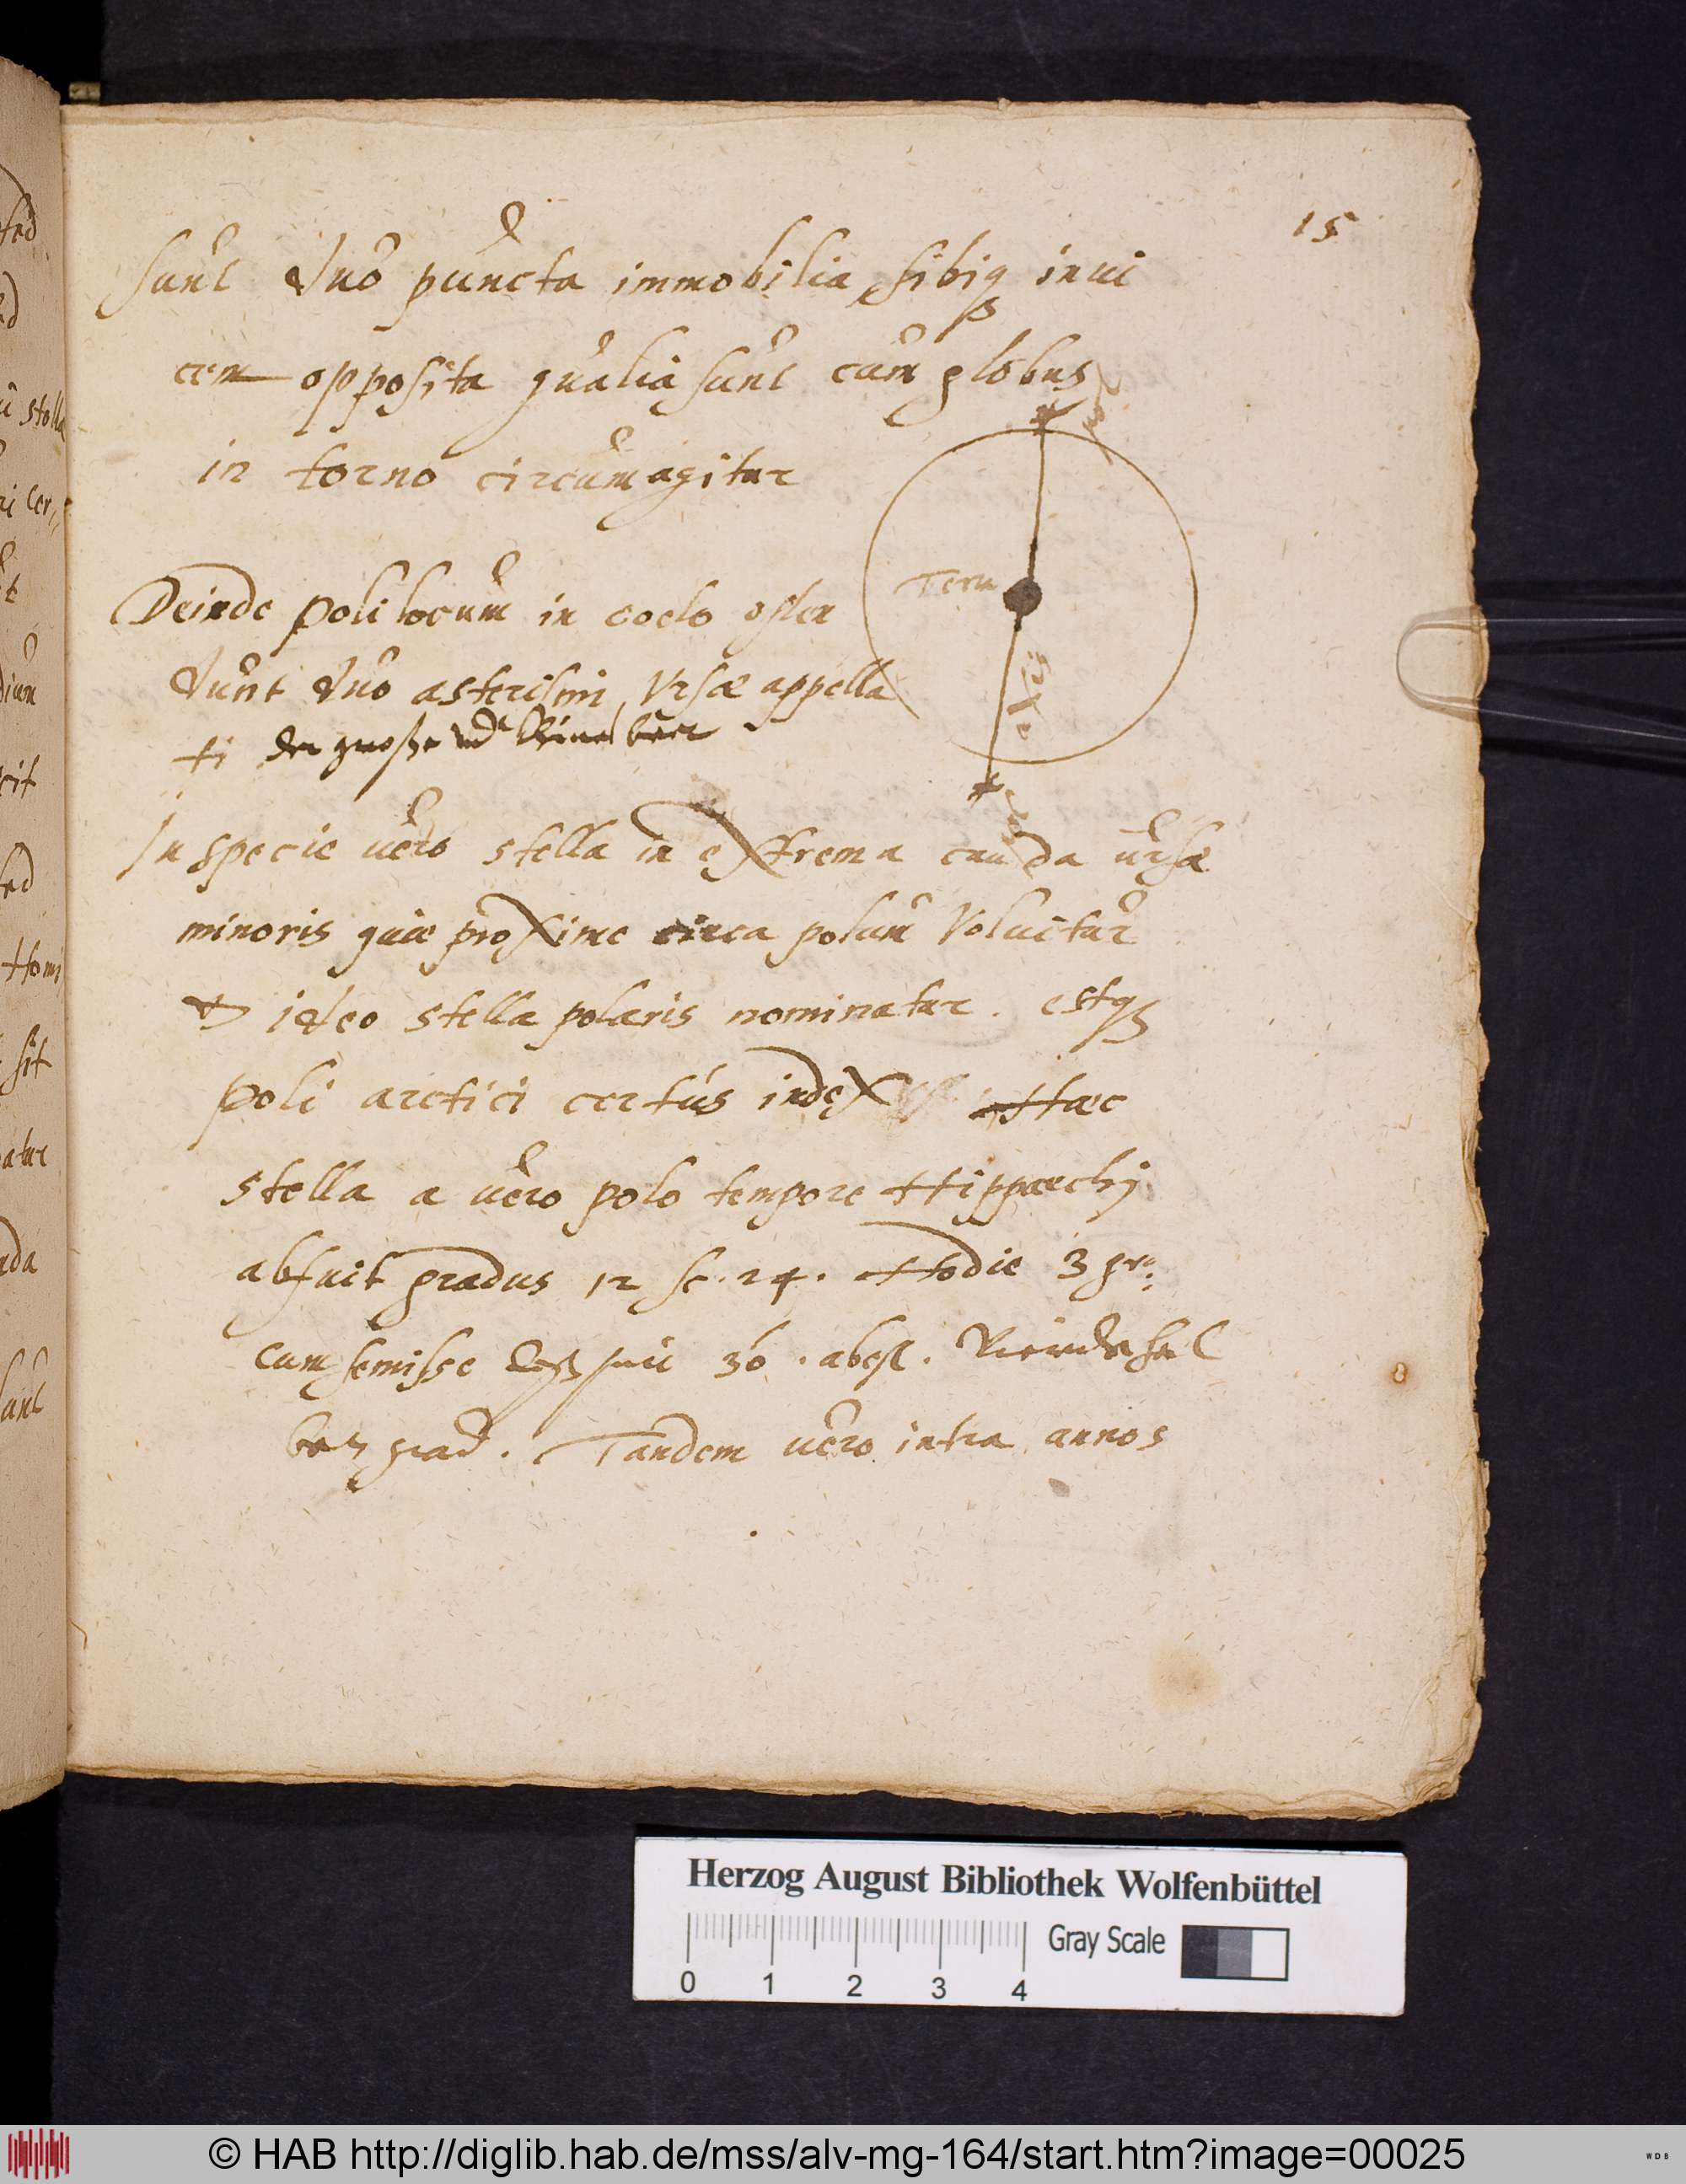 15
sunt duo puncta immobilia, sibiq; inui
cem opposita qualia sunt cum globus
in torno circumagitur
Terra
axis
Deinde poli locum in coelo osten
dunt duo asterismi, Vrsæ appella
ti der große vnd kleine beer
In specie uero stella in extrema cauda ursæ
minoris quæ proxime circa polum Voluitur
& ideo stella polaris nominatur. estq;
poli arctici certus index Hæc
stella a uero polo tempore Hipparchi
abfuit gradus 12 sc. 24. Hodie 3 gr:
cum semisse 36. abest. Vierdehal
ben grad. Tandem uero intra annos
Herzog August Bibliothek Wolfenbüttel
Gray Scale
0 1 2 3 4
© HAB http://diglib.hab.de/mss/alv-mg-164/start.htm?image=00025
WDB